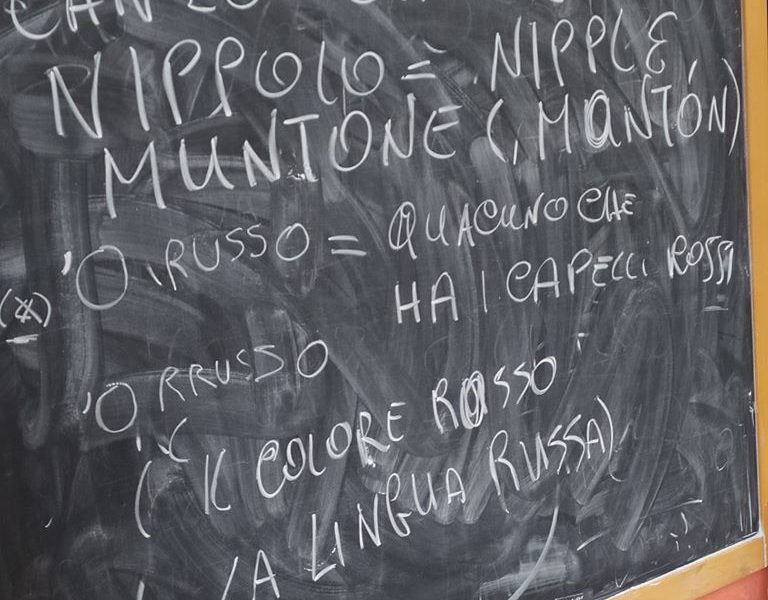 NIPPOLO = NIPPLE
MUNTONE (, MONTÓN)
'O RUSSO = QUACUNO CHE
(*) HA I CAPELLI ROSSI
'O RRUSSO
(IL COLORE ROSSO
LA LINGUA RUSSA)